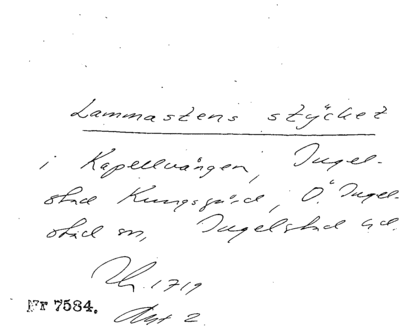 Lammastens stycket
i Kapellvången, Ingel-
stad Kungsgård, Ö. Ingel-
stad sn, Ingelstad hd.
1719
Fr 7584. 2